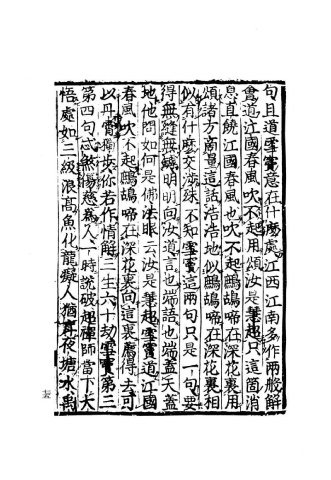 句且道雪竇意在什麼處江西江南多作兩般解
會道江國春風吹不起用頌汝是慧超只這箇消
息直饒江國春風也吹不起鷓鴣啼在深花裏用
頌諸方商量這話浩浩地似鷓鴣啼在深花裏相
似有什麼交涉殊不知雪竇這兩句只是一句要
得無縫無罅明明向汝道言也端語也端蓋天蓋
地他問如何是佛法眼云汝是慧超雪竇道江國
春風吹不起鷓鴣啼在深花裏向這裏薦得去可
以丹霄獨步你若作情解三生六十劫雪竇第三
第四句忒煞傷慈爲人一時說破超禪師當下大
悟處如三級浪高魚化龍癡人猶戽夜塘水禹